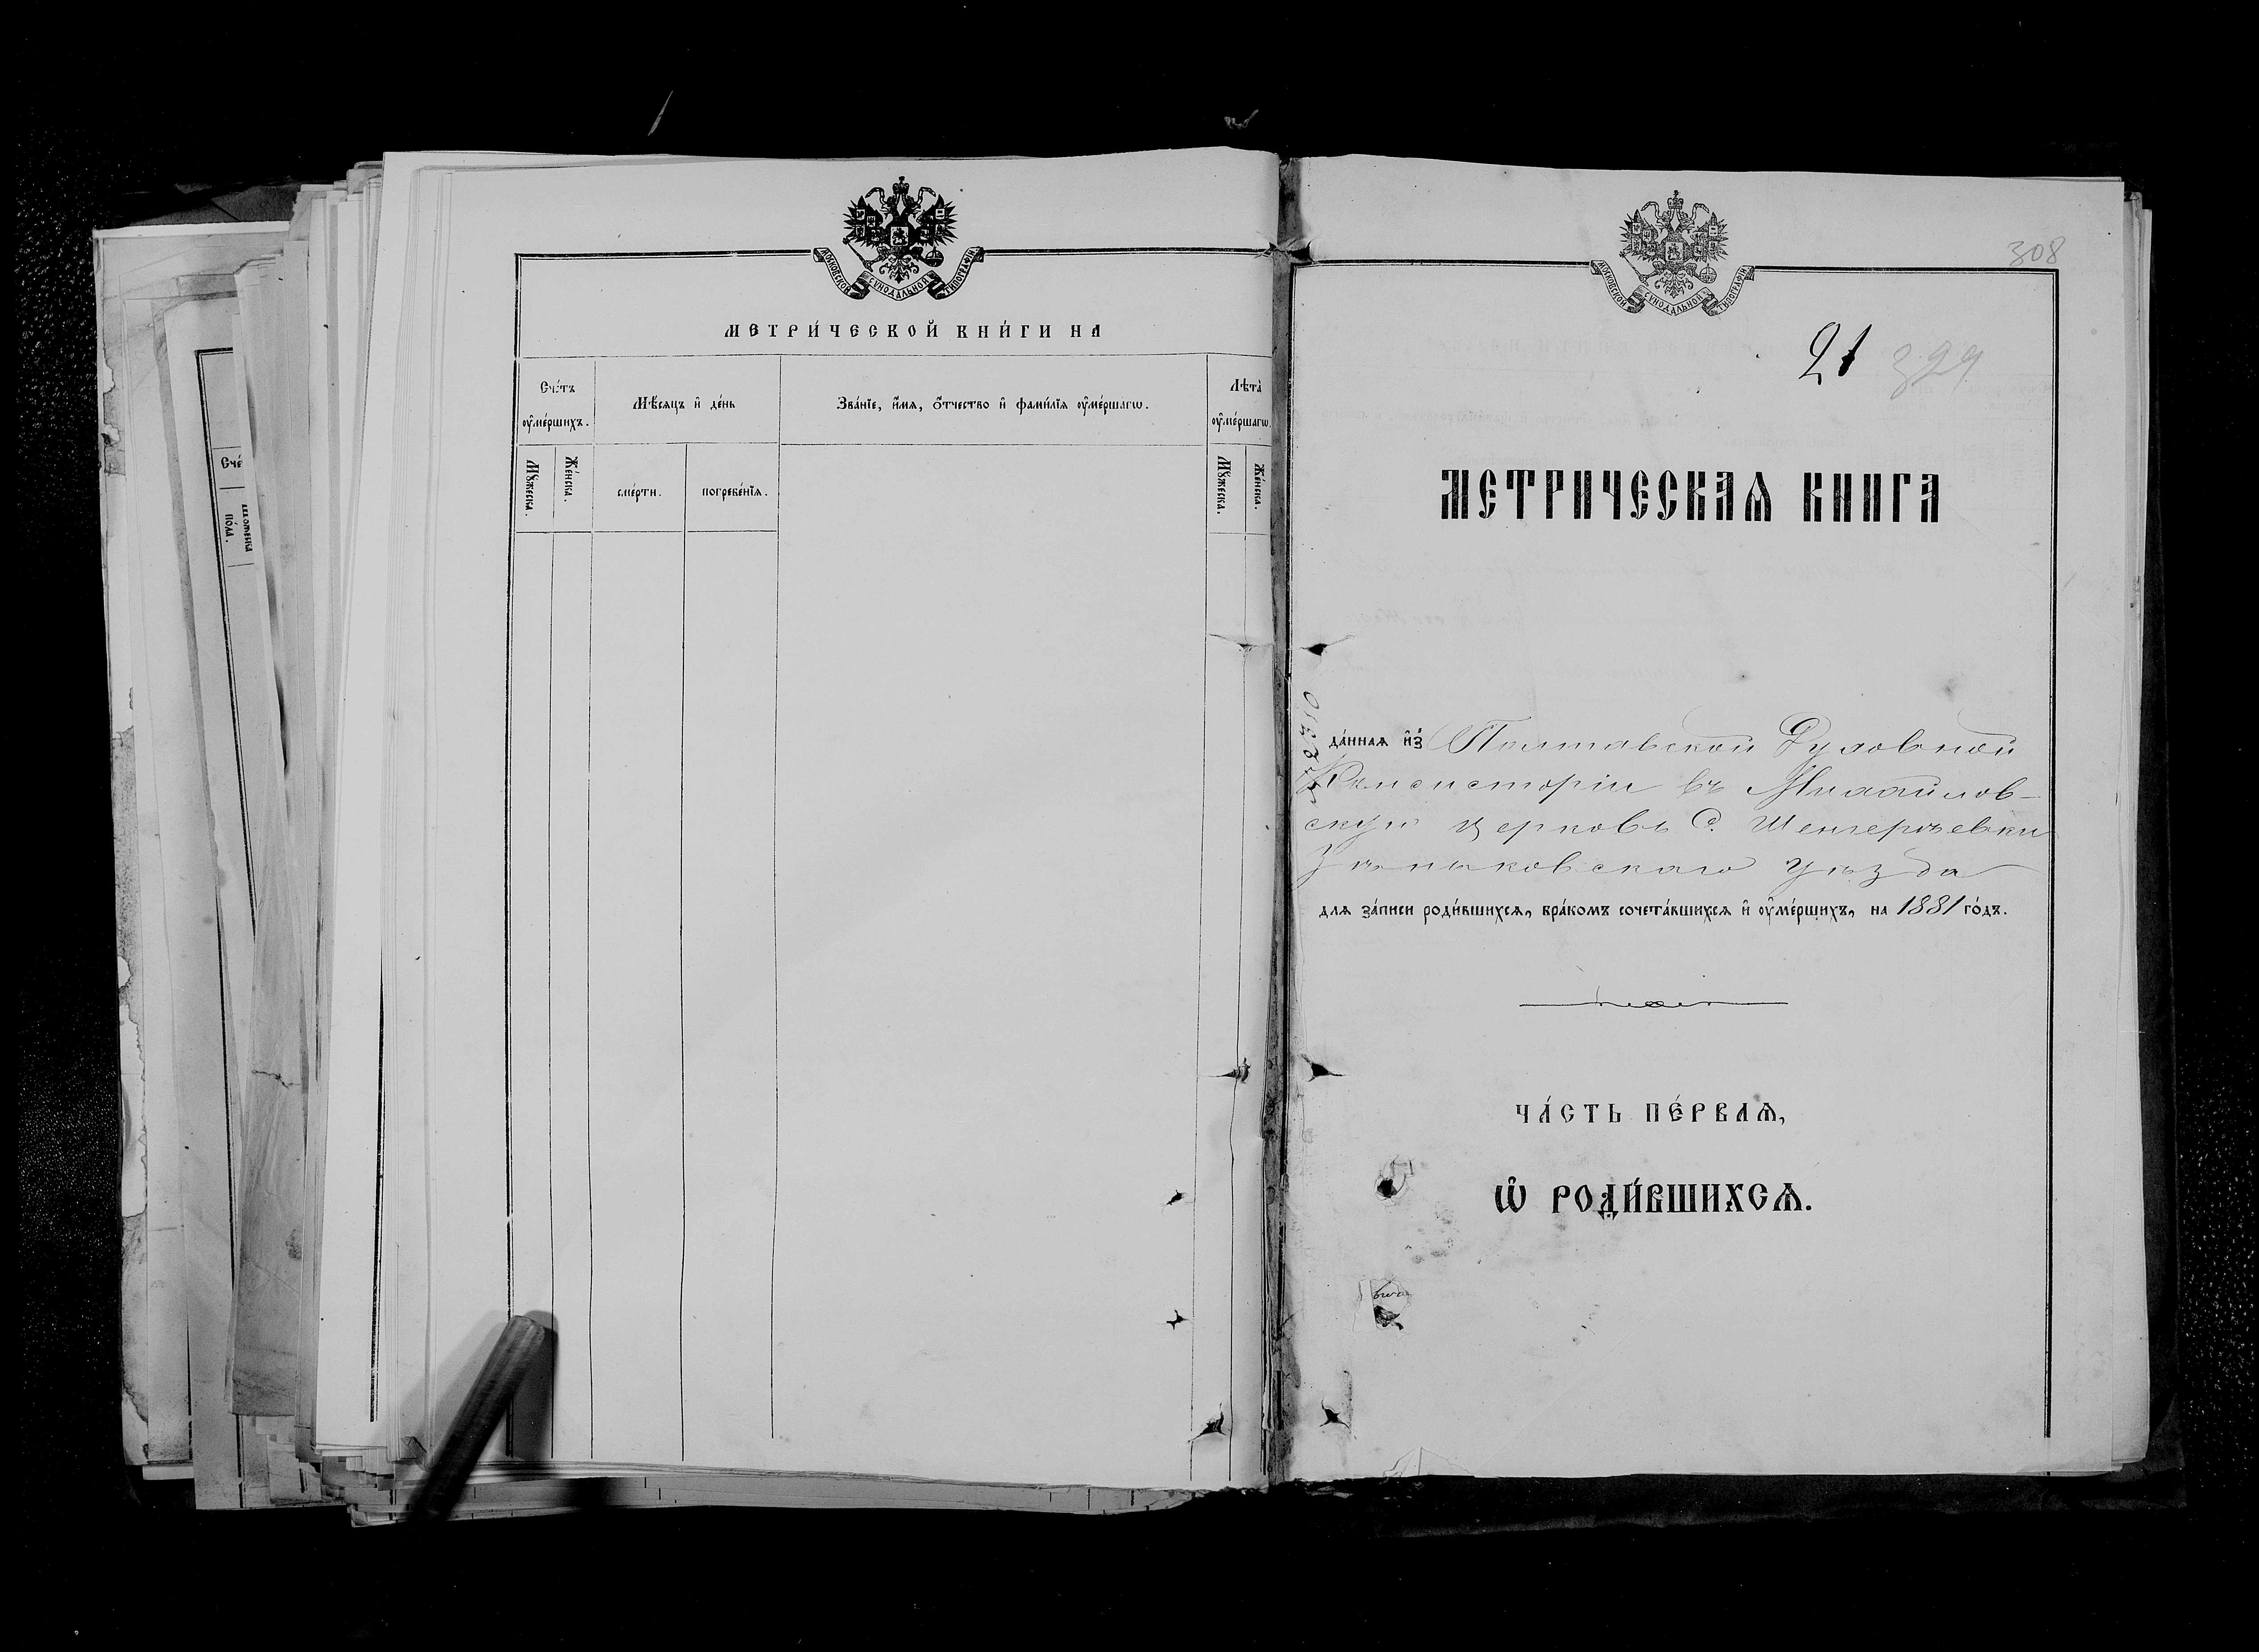 МОСКОВСКОЙ СѴНОДАЛЬНОЙ ТИПОГРАФІИ
МЕТРИ́ЧЕСКОЙ КНИ́ГИ НА
Сче́тъ
оу҆ме́ршихъ.
Мѣ́сяцъ и҆ де́нь
Зва́нїе, и҆́мя, ѻ҆́тчество и҆ фами́лїя оу҆ме́ршагѡ.
Лѣта̀
оу҆ме́ршагѡ.
Мꙋ́жеска.
Же́нска.
сме́рти.
погребе́нїя.
Мꙋ́жеска.
Же́нска.
Сче́
по́ла.
МОСКОВСКОЙ СѴНОДАЛЬНОЙ ТИПОГРАФІИ
308
21 329
МЕТРИЧЕСКАѦ КНИГА
да́нная и҆з̾ Полтавской Духовной
Консисторіи въ Михайлов-
скую церковь С. Шенгерѣевки
Зѣньковскаго уѣзда
для за́писи роди́вшихся, бра́комъ сочета́вшихся и҆ оу҆ме́ршихъ, на 1881 го́дъ.
ЧА́СТЬ ПЕ́РВАѦ,
Ѡ҆ РОДИ́ВШИХСѦ.